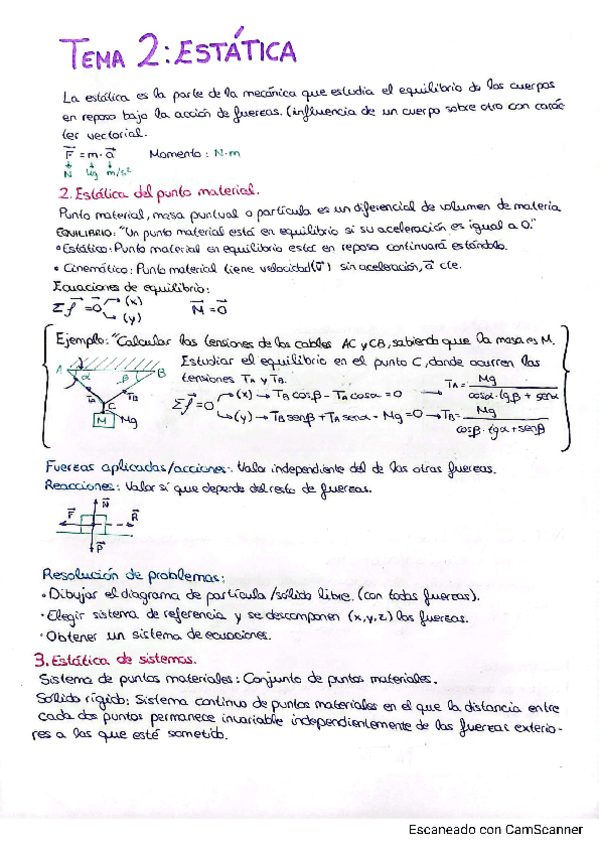 TEMA 2: ESTÁTICA
La estática es la parte de la mecánica que estudia el equilibrio de los cuerpos
en reposo bajo la acción de fuerzas. (influencia de un cuerpo sobre otro con carác
ter vectorial.
F = m · a Momento: N·m
N kg m/s²
2. Estática del punto material.
Punto material, masa puntual o partícula es un diferencial de volumen de materia
EQUILIBRIO: "Un punto material está en equilibrio si su aceleración es igual a 0."
• Estático: Punto material en equilibrio estar en reposo continuará estándolo.
• Cinemático: Punto material tiene velocidad (v) sin aceleración, a cte.
Ecuaciones de equilibrio:
Σf = 0 (x) (y) M = 0
Ejemplo: "Calcular las tensiones de los cables AC y CB, sabiendo que la masa es M.
Estudiar el equilibrio en el punto C, donde ocurren las
tensiones TA y TB.
A α β B
TA TB
C
M Mg
Σf = 0 (x) → TB cosβ - TA cosα = 0 → TA = Mg / cosα · tgβ + senα
(y) → TB senβ + TA senα - Mg = 0 → TB = Mg / cosβ · tgα + senβ
Fuerzas aplicadas/acciones: Valor independiente del de las otras fuerzas.
Reacciones: Valor sí que depende del resto de fuerzas.
N
F R
P
Resolución de problemas:
• Dibujar el diagrama de partícula/sólido libre. (con todas fuerzas).
• Elegir sistema de referencia y se descomponen (x,y,z) las fuerzas.
• Obtener un sistema de ecuaciones.
3. Estática de sistemas.
Sistema de puntos materiales: Conjunto de puntos materiales.
Sólido rígido: Sistema continuo de puntos materiales en el que la distancia entre
cada dos puntos permanece invariable independientemente de las fuerzas exterio-
res a las que esté sometido.
Escaneado con CamScanner